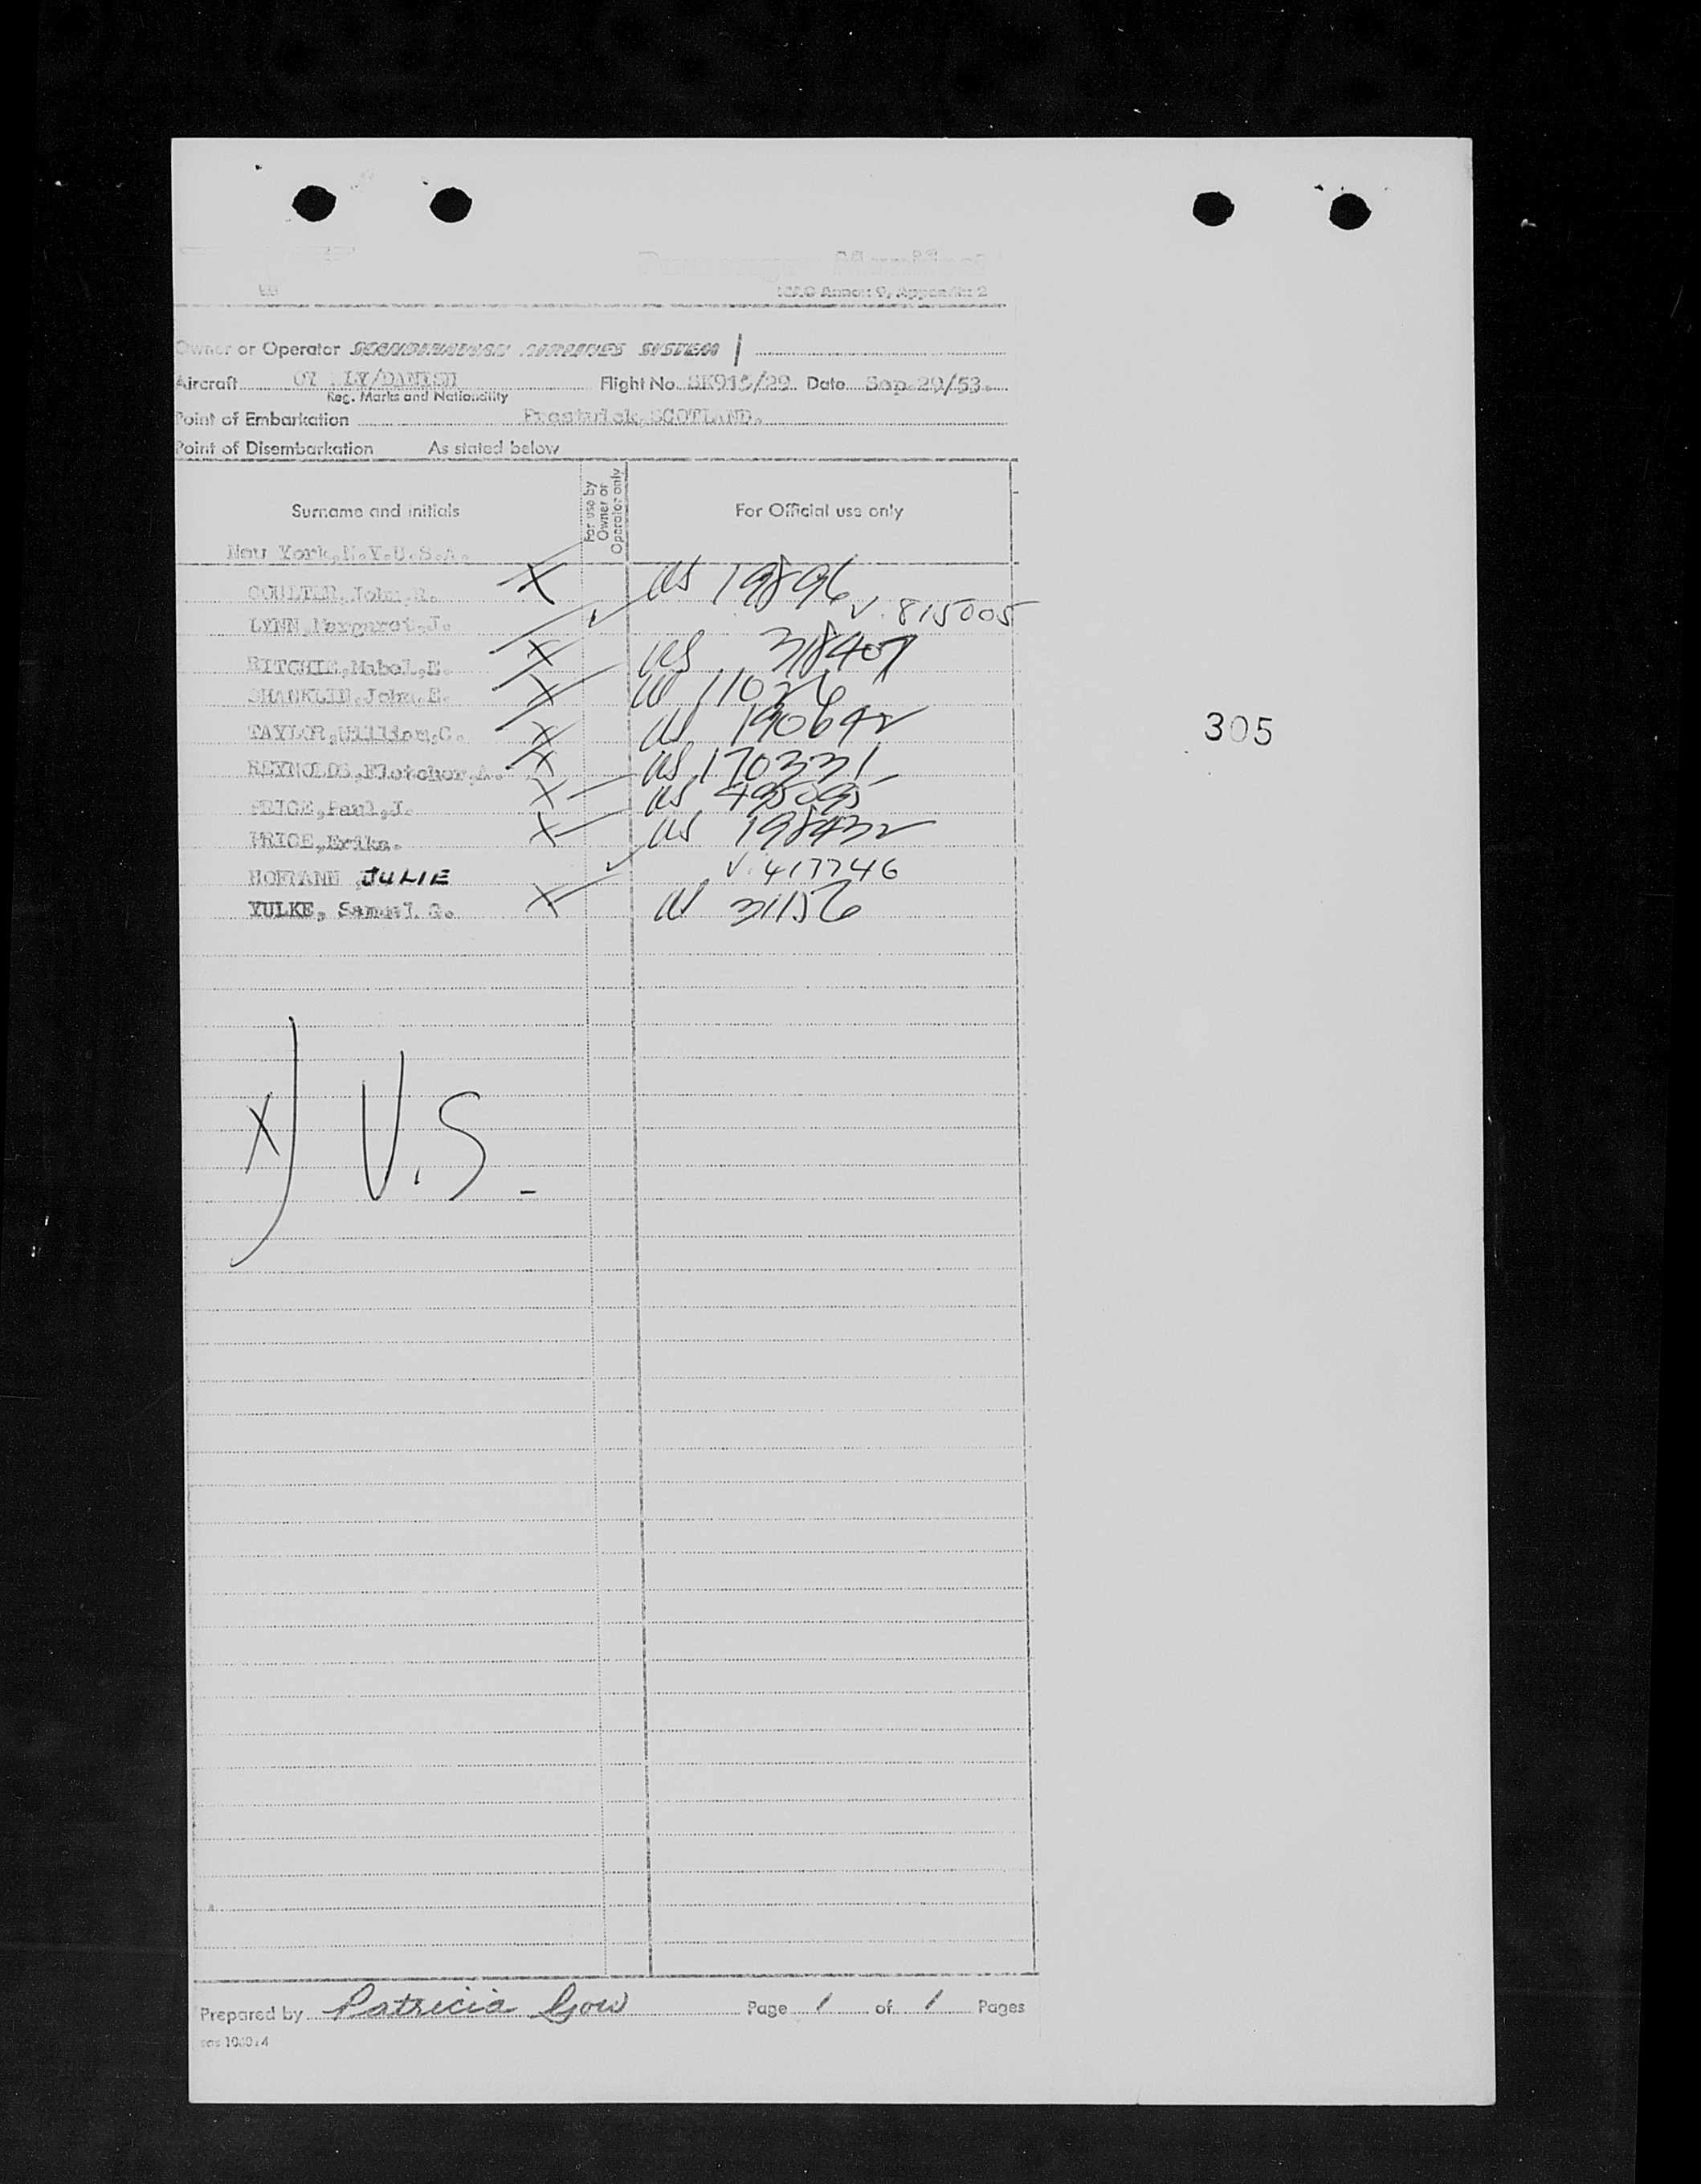 Passenger Manifest
ICAO Annex 9, Appendix 2
Owner or Operator SCANDINAVIAN AIRLINES SYSTEM
Aircraft OY KLY/DANISH Flight No. SK915/29 Date Sep.29/53.
Reg. Marks and Nationality
Point of Embarkation Prestwick,SCOTLAND.
Point of Disembarkation As stated below
Surname and initials For use by Owner or Operator only For Official use only
New York,N.Y.U.S.A.
COULTER,John,R. X US 19896
LYNN,Margaret,J. V. 815005
RITCHIE,Mabel,E. X US 318407
SHACKLIN,John,E. X US 11026
TAYLOR,William,C. X US 190642
305
REYNOLDS,Fletcher,A. X US 170331
PRICE,Paul,J. X US 495095
PRICE,Erika. X US 198432
HOFMANN JULIE V. 417746
YULKE, Samuel G. X US 31156
X) U.S.
Prepared by Patricia Gow Page 1 of 1 Pages